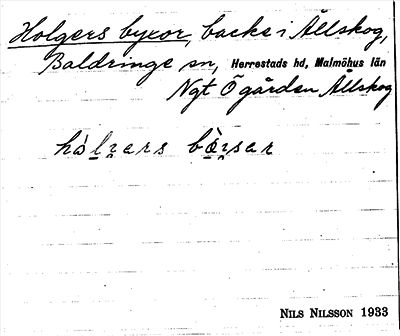 Holgers byxor, backe i Allskog,
Baldringe sn, Herrestads hd, Malmöhus län
Ngt Ö gården Allskog
hòlgers
NILS NILSSON 1933